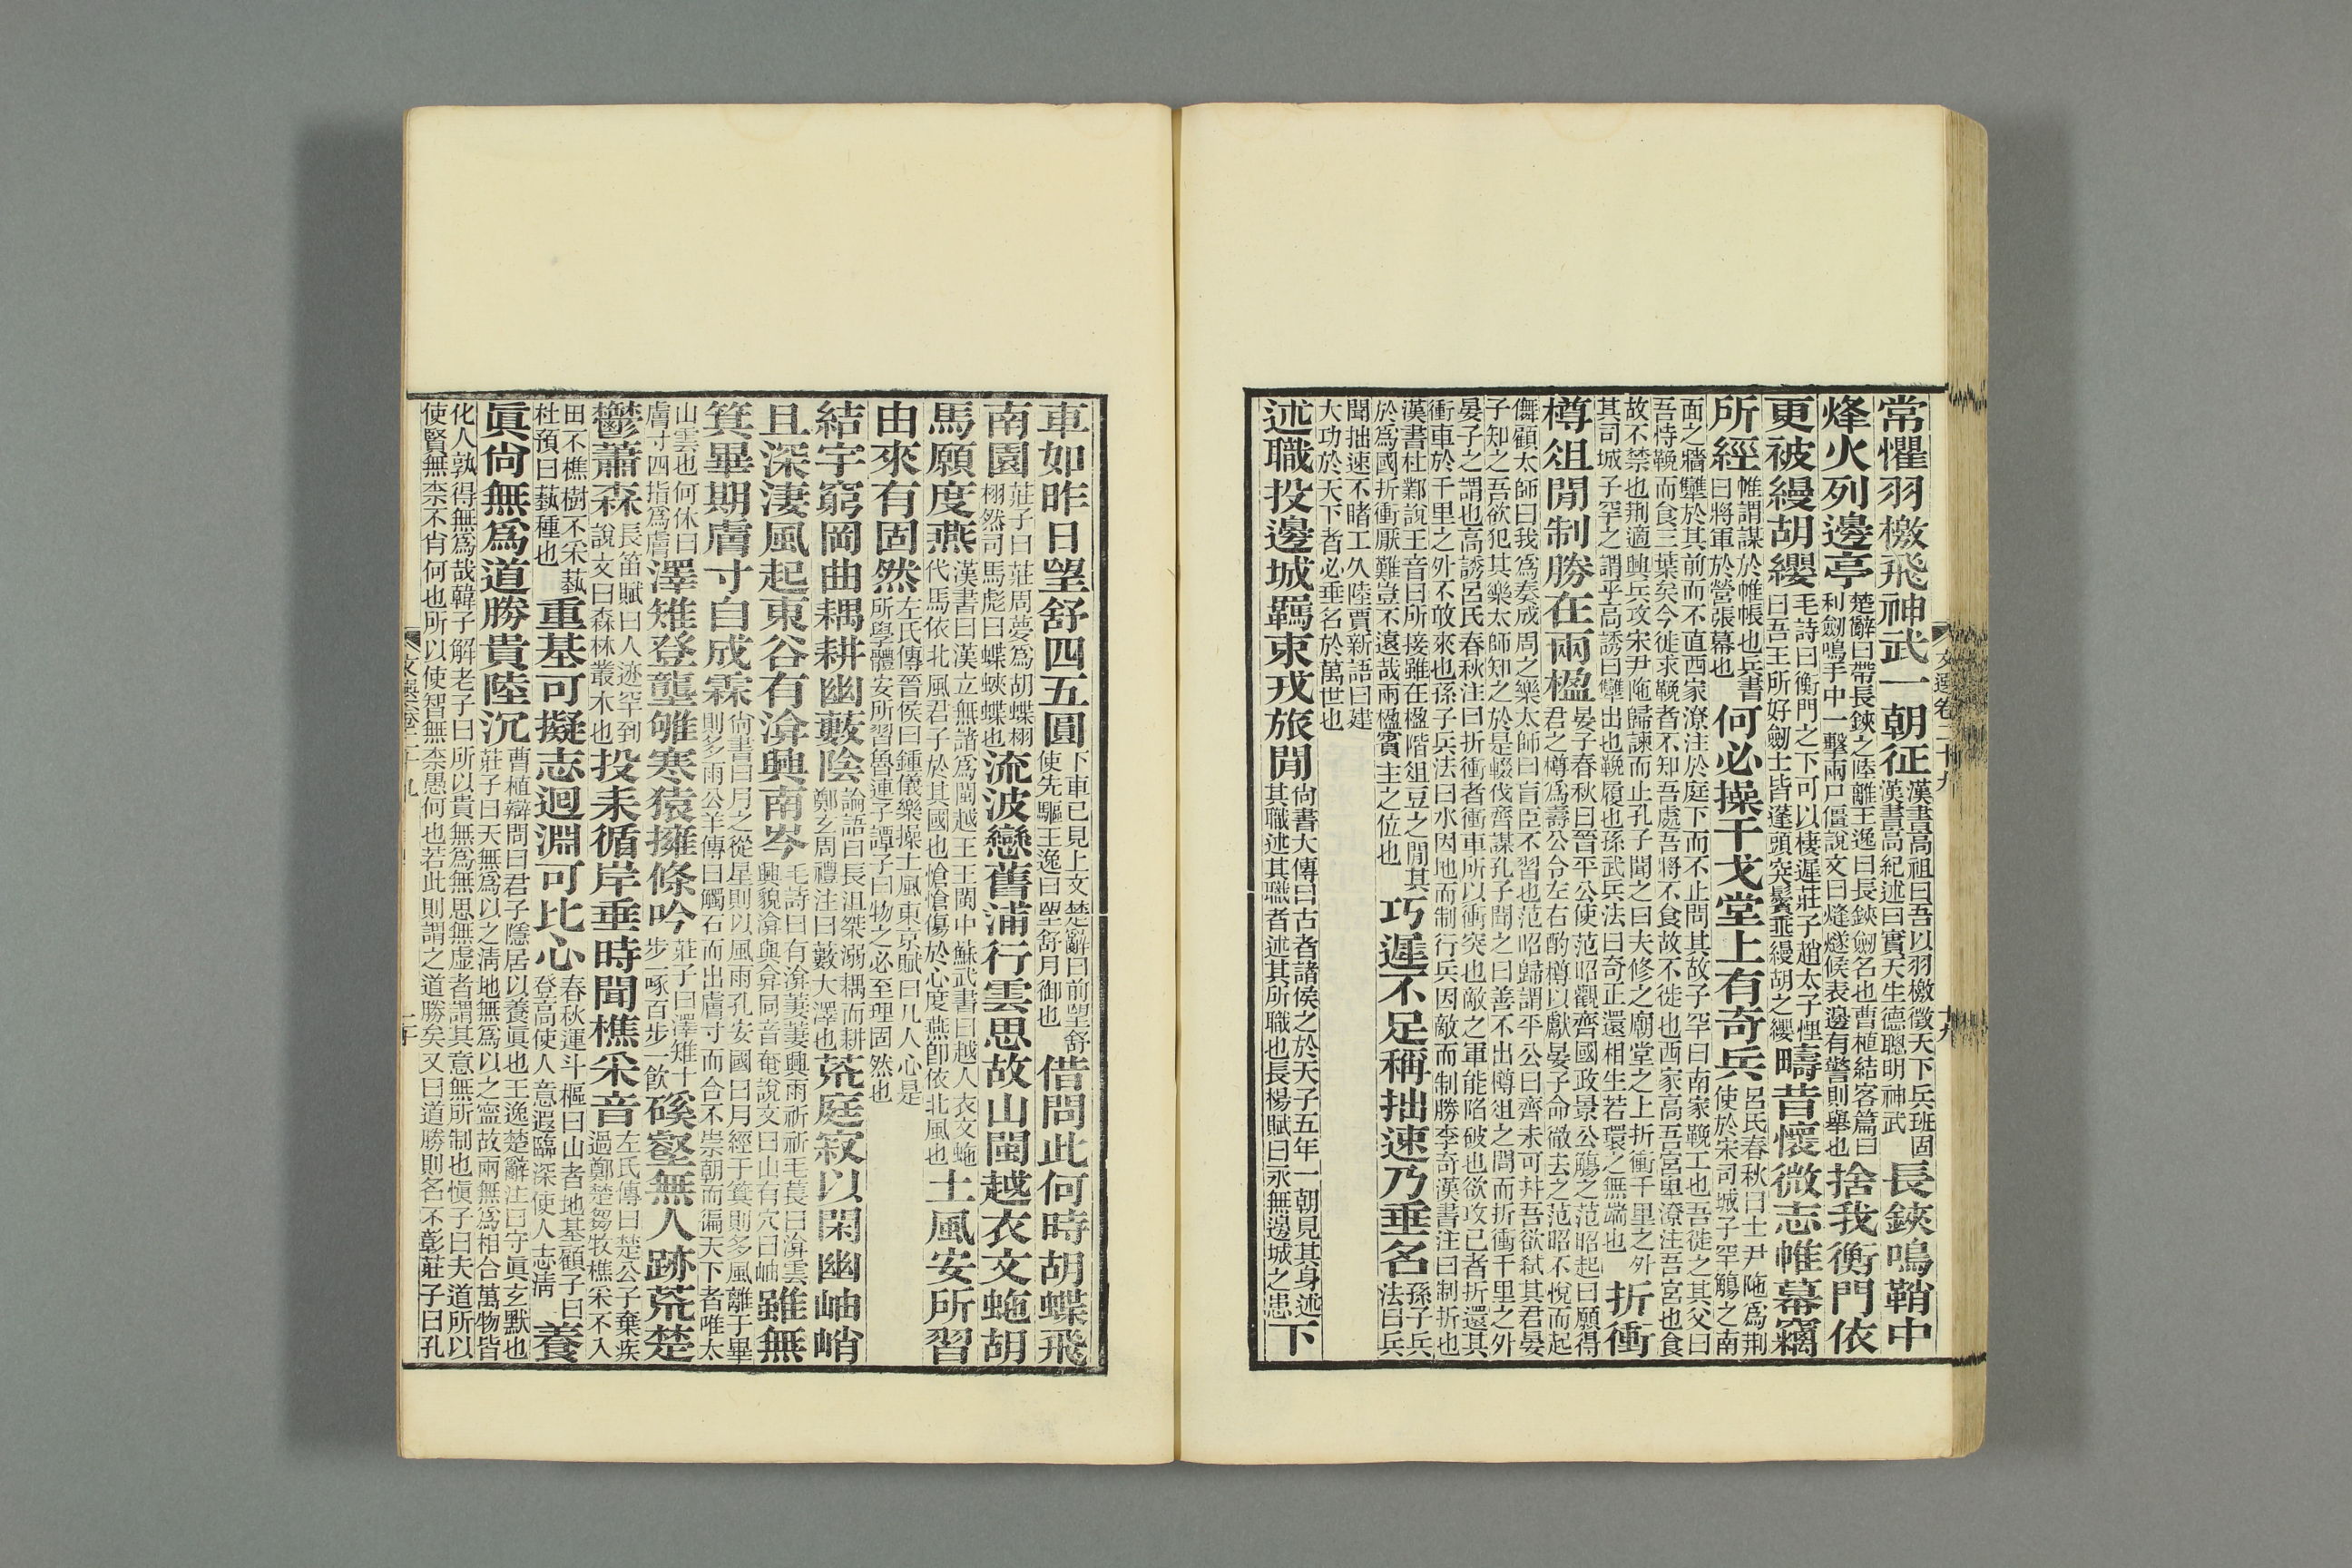 常懼羽檄飛神武一朝征漢書高祖曰吾以羽檄徵天下兵班固漢書高紀述曰實天生德聰明神武長鋏鳴鞘中
烽火列邊亭楚辭曰帶長鋏之陸離王逸曰長鋏劒名也曹植結客篇曰利劒鳴手中一擊兩尸僵說文曰㷭燧候表邊有警則舉也捨我衡門依
更被縵胡纓毛詩曰衡門之下可以棲遲莊子趙太子悝曰吾王所好劒士皆蓬頭突鬢垂縵胡之纓疇昔懷微志帷幕竊
所經帷謂謀於帷帳也兵書曰將軍於營張幕也何必操干戈堂上有奇兵呂氏春秋曰士尹陁爲荆使於宋司城子罕觴之南
面之牆犨於其前而不直西家潦注於庭下而不止問其故子罕曰南家鞔工也吾徙之其父曰
吾恃鞔而食三葉矣今徙求鞔者不知吾處吾將不食故不徙也西家高吾宮卑潦注吾宮也食
故不禁也荆適興兵攻宋尹陁歸諫而止孔子聞之曰夫修之廟堂之上折衝千里之外
其司城子罕之謂乎高誘曰犨出也鞔履也孫武兵法曰奇正還相生若環之無端也折衝
樽俎閒制勝在兩楹晏子春秋曰晉平公使范昭觀齊國政景公觴之范昭起曰願得君之樽爲壽公令左右酌樽以獻晏子命徹去之范昭不悅而起
儛顧太師曰我爲奏成周之樂太師曰盲臣不習也范昭歸謂平公曰齊未可并吾欲弒其君晏
子知之吾欲犯其樂太師知之於是輟伐齊謀孔子聞之曰善不出樽俎之閒而折衝千里之外
晏子之謂也高誘呂氏春秋注曰折衝者衝車所以衝突也敵之軍能陷破也欲攻己者折還其
衝車於千里之外不敢來也孫子兵法曰水因地而制行兵因敵而制勝李奇漢書注曰制折也
漢書杜鄴說王音曰所接雖在楹階俎豆之閒其
於爲國折衝厭難豈不遠哉兩楹賓主之位也巧遲不足稱拙速乃垂名孫子兵法曰兵
聞拙速不睹工久陸賈新語曰建
大功於天下者必垂名於萬世也
述職投邊城羈束戎旅閒尙書大傳曰古者諸侯之於天子五年一朝見其身述其職述其職者述其所職也長楊賦曰永無邊城之患下
文選卷二十九
十九
車如昨日望舒四五圓下車已見上文楚辭曰前望舒使先驅王逸曰望舒月御也借問此何時胡蝶飛
南園莊子曰莊周夢爲胡蝶栩栩然司馬彪曰蝶蛺蝶也流波戀舊浦行雲思故山閩越衣文虵胡
馬願度燕漢書曰漢立無諸爲閩越王王閩中蘇武書曰越人衣文虵代馬依北風君子於其國也愴愴傷於心度燕卽依北風也土風安所習
由來有固然左氏傳晉侯曰鍾儀樂操土風東京賦曰凡人心是所學體安所習魯連子譚子曰物之必至理固然也
結宇窮岡曲耦耕幽藪陰論語曰長沮桀溺耦而耕鄭玄周禮注曰藪大澤也荒庭寂以閑幽岫峭
且深淒風起東谷有渰興南岑毛詩曰有渰萋萋興雨祈祈毛萇曰渰雲興貌渰與弇同音奄說文曰山有穴曰岫雖無
箕畢期膚寸自成霖尙書曰月之從星則以風雨孔安國曰月經于箕則多風離于畢則多雨公羊傳曰觸石而出膚寸而合不崇朝而徧天下者唯太
山雲也何休曰
膚寸四指爲膚澤雉登壟雊寒猿擁條吟莊子曰澤雉十步一啄百步一飮磎壑無人跡荒楚
鬱蕭森長笛賦曰人迹罕到說文曰森林叢木也投耒循岸垂時聞樵采音左氏傳曰楚公子棄疾過鄭楚芻牧樵采不入
田不樵樹不采蓺
杜預曰蓺種也重基可擬志迴淵可比心春秋運斗樞曰山者地基顧子曰登高使人意遐臨深使人志淸養
眞尙無爲道勝貴陸沉曹植辯問曰君子隱居以養眞也王逸楚辭注曰守眞玄默也莊子曰天無爲以之淸地無爲以之寍故兩無爲相合萬物皆
化人孰得無爲哉韓子解老子曰所以貴無爲無思無虛者謂其意無所制也愼子曰夫道所以
使賢無柰不肖何也所以使智無柰愚何也若此則謂之道勝矣又曰道勝則名不彰莊子曰孔
文選卷二十九
二十